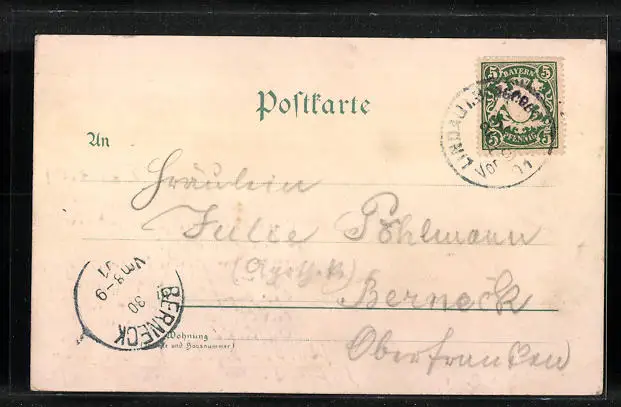 Postkarte
5 BAYERN 5
5 PFENNIG 5
LINDAU
Vor
01
An
Fräulein
Julie Pöhlmann
(Apothek)
Berneck
Oberfranken
BERNECK
30
Vm 8-9
01
Wohnung
und Hausnummer)